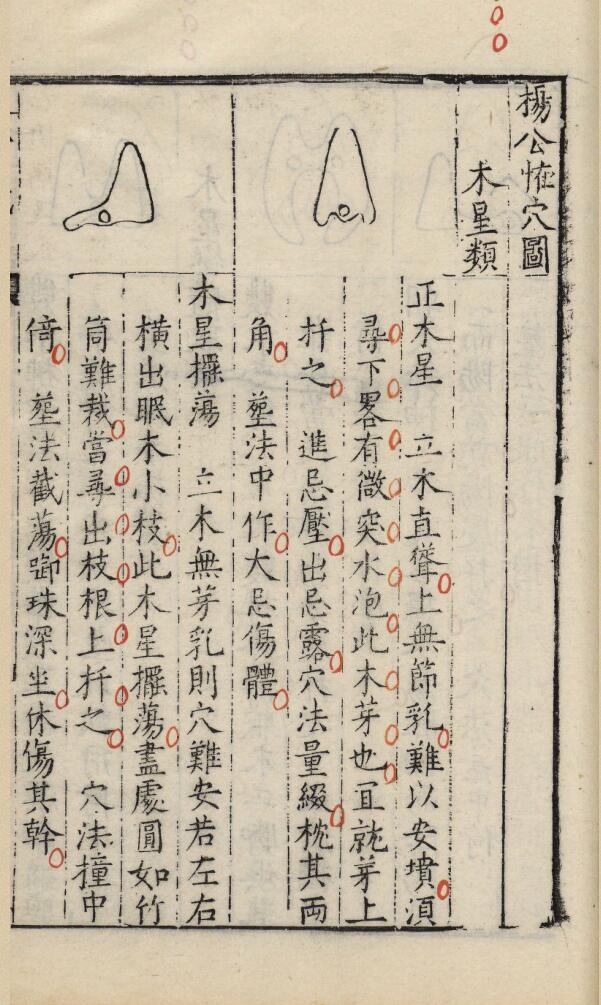 楊公怪穴圖
木星類
正木星　立木直聳上無節乳難以安墳湏
尋下畧有微突水泡此木芽也宜就芽上
扦之　進忌壓出忌露穴法量綴枕其兩
角　塟法中作大忌傷體
木星擺蕩　立木無芽乳則穴難安若左右
橫出眠木小枝此木星擺蕩盡處圓如竹
筒難裁當尋出枝根上扦之　穴法撞中
倚　塟法截蕩啣珠深坐休傷其幹